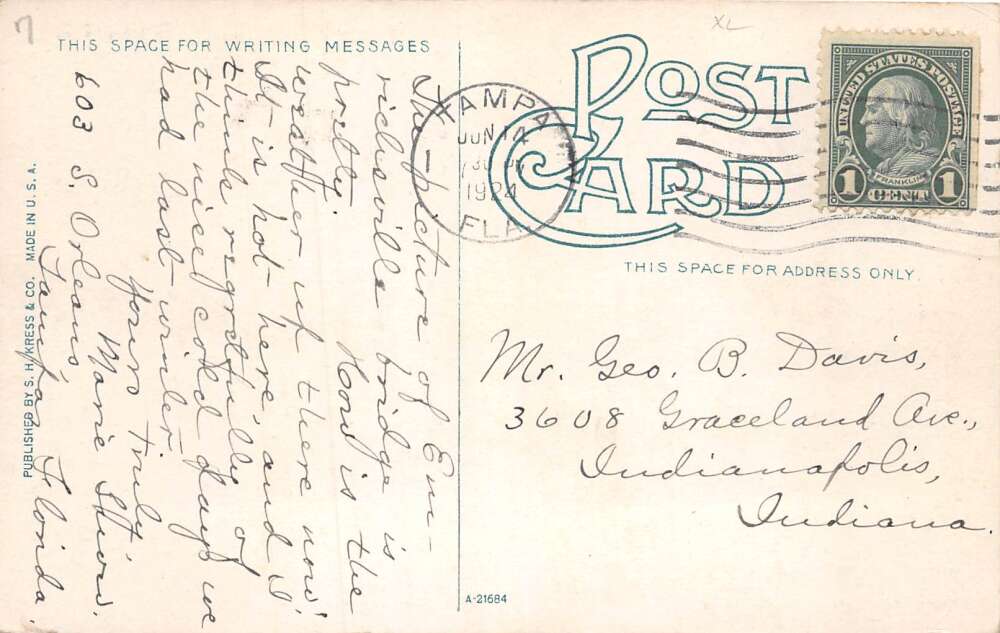 7
XL
THIS SPACE FOR WRITING MESSAGES
POST
CARD
TAMPA
JUN 14
1924
FLA.
UNITED STATES POSTAGE
FRANKLIN
1 CENT 1
THIS SPACE FOR ADDRESS ONLY.
The picture of Em-
richsville bridge is
pretty. How is the
weather up there now?
It is hot here, and I
think regretfully of
the nice cold days we
had last winter.
Yours truly,
Marie
603 S. Orleans
Tampa, Florida.
Mr. Geo. B. Davis,
3608 Graceland Ave.,
Indianapolis,
Indiana.
PUBLISHED BY S. H. KRESS & CO. MADE IN U. S. A.
A-21684